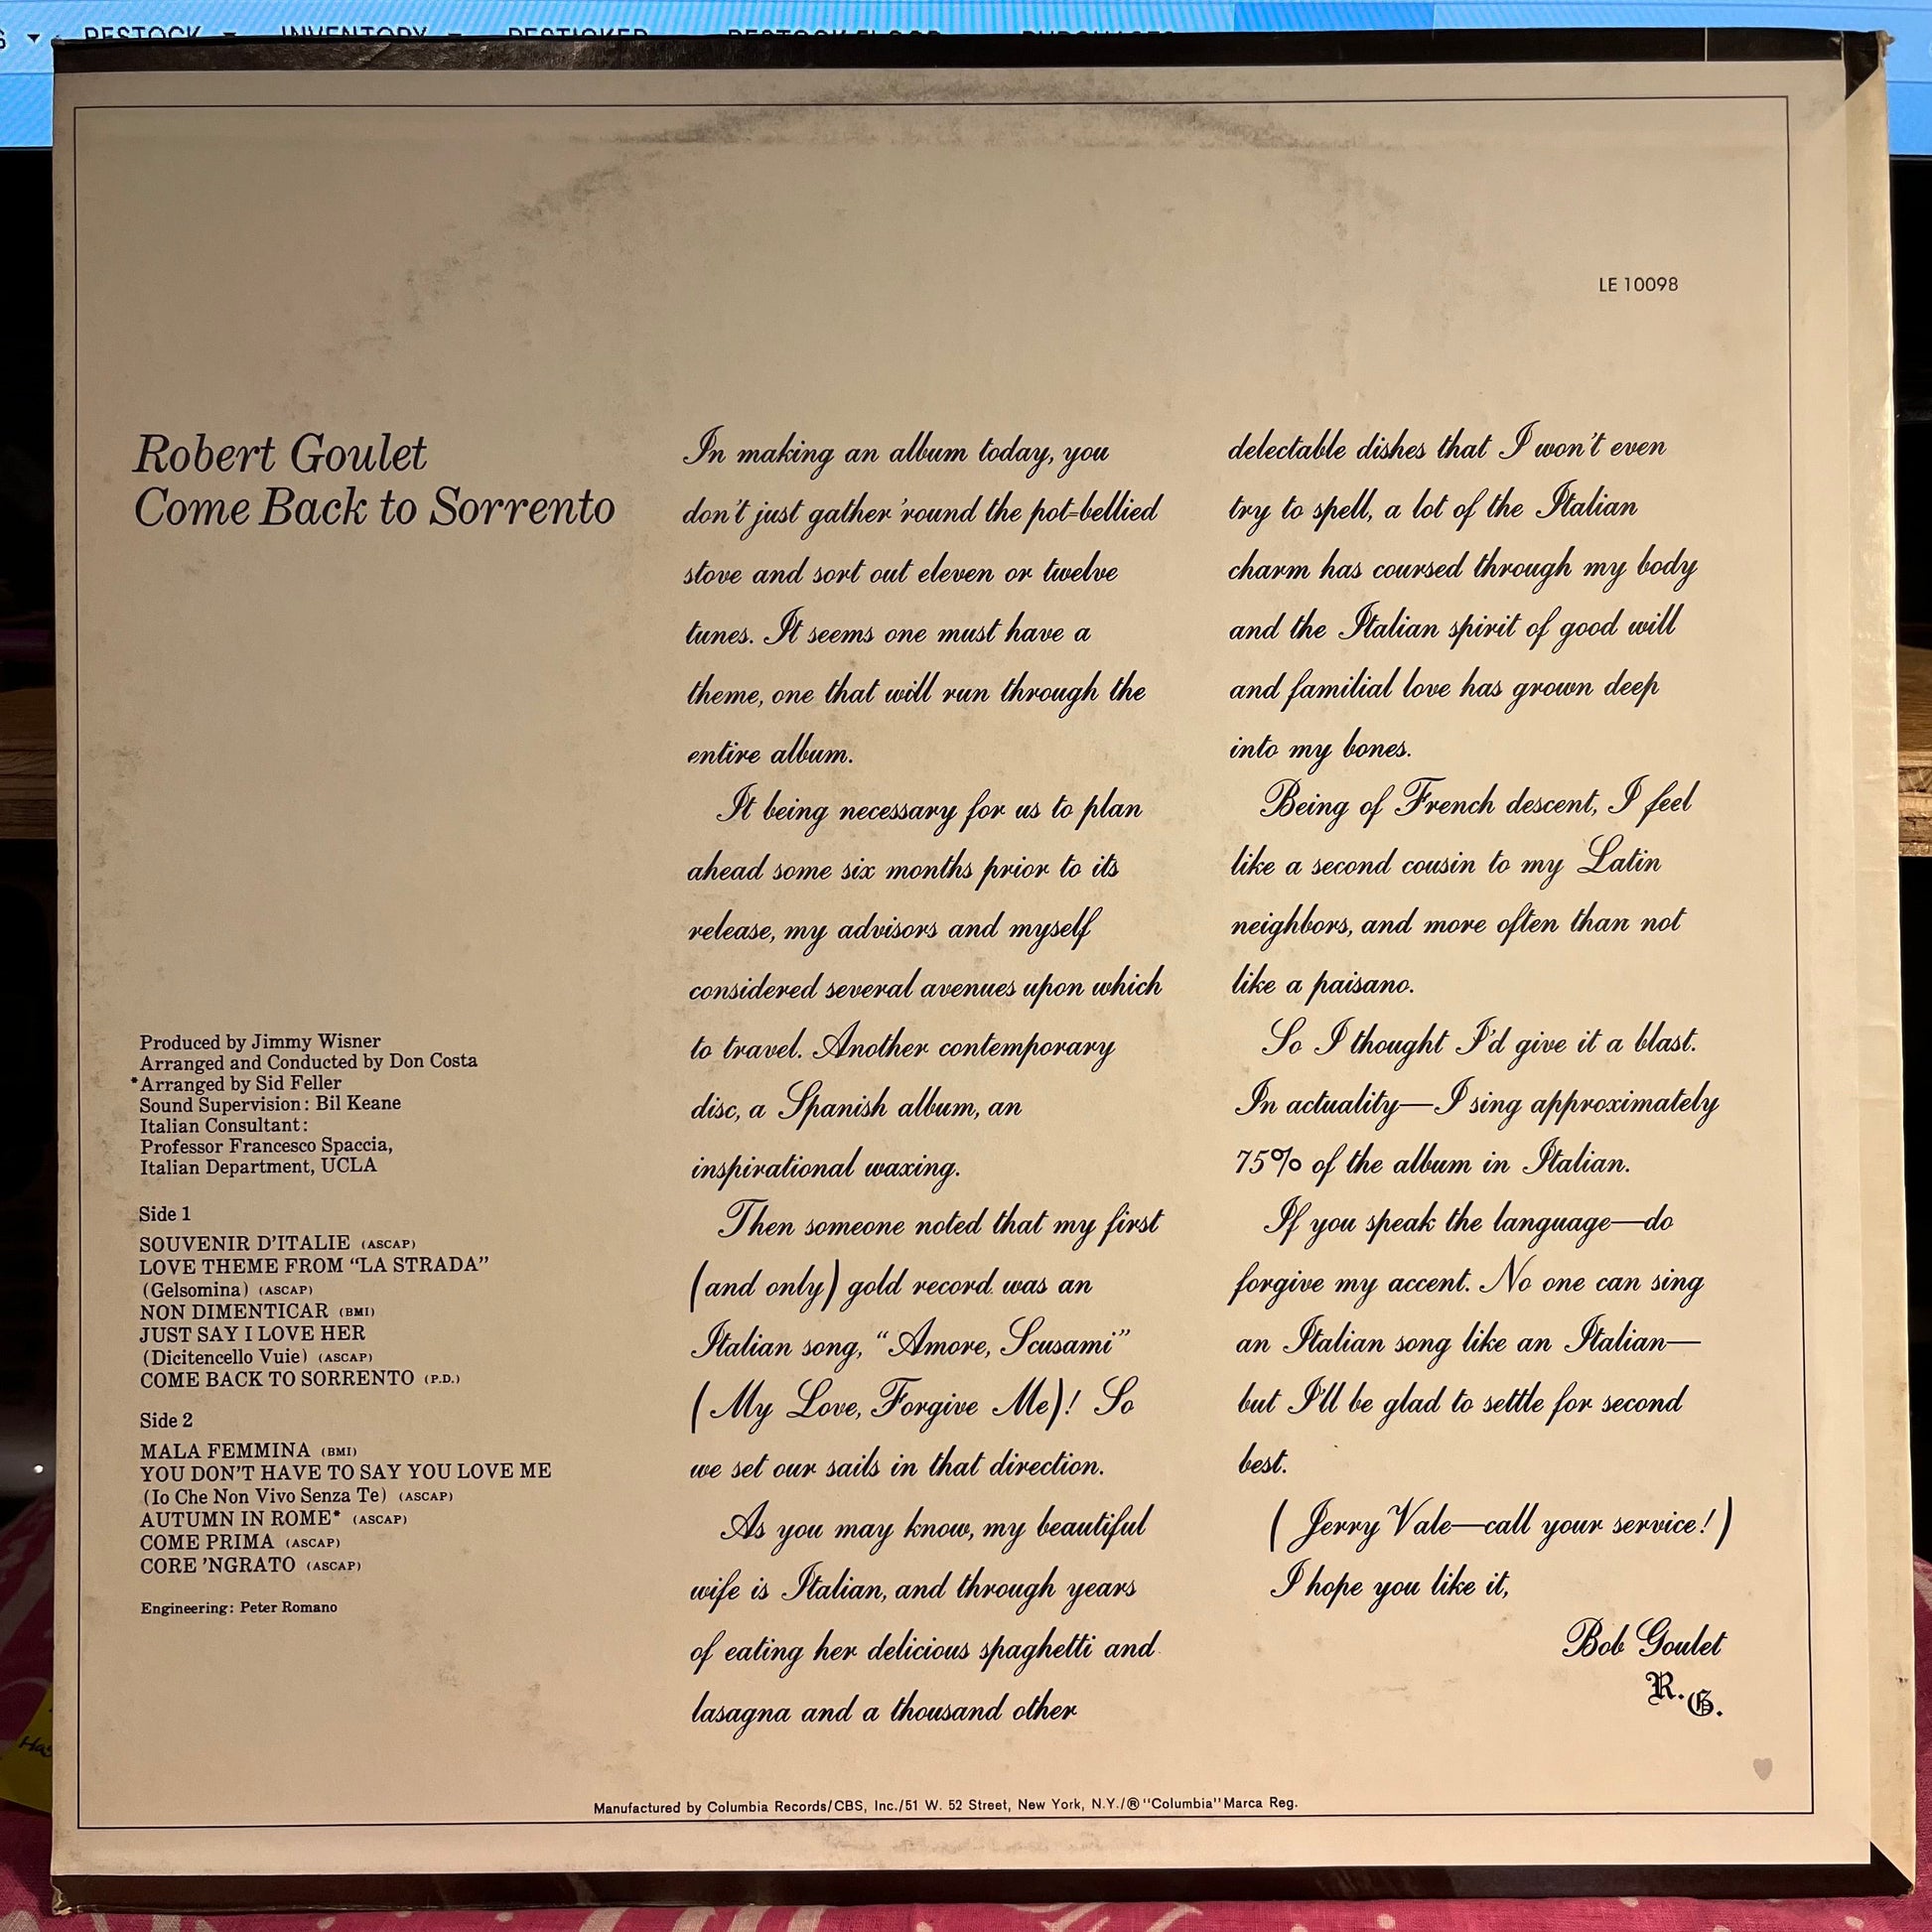 RESTOCK INVENTORY RESTICKER RESTOCK FLOOR PURCHASES
LE 10098
Robert Goulet
Come Back to Sorrento
Produced by Jimmy Wisner
Arranged and Conducted by Don Costa
*Arranged by Sid Feller
Sound Supervision: Bil Keane
Italian Consultant:
Professor Francesco Spaccia,
Italian Department, UCLA
Side 1
SOUVENIR D'ITALIE (ASCAP)
LOVE THEME FROM “LA STRADA”
(Gelsomina) (ASCAP)
NON DIMENTICAR (BMI)
JUST SAY I LOVE HER
(Dicitencello Vuie) (ASCAP)
COME BACK TO SORRENTO (P.D.)
Side 2
MALA FEMMINA (BMI)
YOU DON'T HAVE TO SAY YOU LOVE ME
(Io Che Non Vivo Senza Te) (ASCAP)
AUTUMN IN ROME* (ASCAP)
COME PRIMA (ASCAP)
CORE 'NGRATO (ASCAP)
Engineering: Peter Romano
In making an album today, you
don't just gather 'round the pot-bellied
stove and sort out eleven or twelve
tunes. It seems one must have a
theme, one that will run through the
entire album.
It being necessary for us to plan
ahead some six months prior to its
release, my advisors and myself
considered several avenues upon which
to travel. Another contemporary
disc, a Spanish album, an
inspirational waxing.
Then someone noted that my first
(and only) gold record was an
Italian song, “Amore, Scusami”
(My Love, Forgive Me)! So
we set our sails in that direction.
As you may know, my beautiful
wife is Italian, and through years
of eating her delicious spaghetti and
lasagna and a thousand other
delectable dishes that I won't even
try to spell, a lot of the Italian
charm has coursed through my body
and the Italian spirit of good will
and familial love has grown deep
into my bones.
Being of French descent, I feel
like a second cousin to my Latin
neighbors, and more often than not
like a paisano.
So I thought I'd give it a blast.
In actuality—I sing approximately
75% of the album in Italian.
If you speak the language—do
forgive my accent. No one can sing
an Italian song like an Italian—
but I'll be glad to settle for second
best.
(Jerry Vale—call your service!)
I hope you like it,
Bob Goulet
R.G.
Manufactured by Columbia Records/CBS, Inc./51 W. 52 Street, New York, N.Y./® "Columbia" Marca Reg.